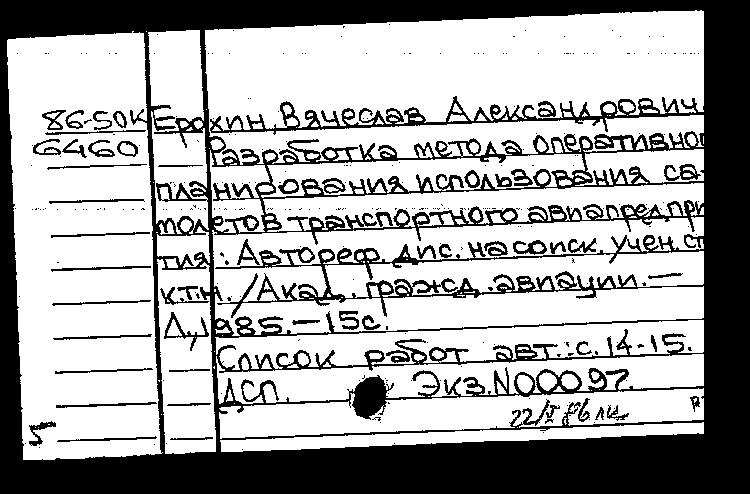 86-50К Ерохин, Вячеслав Александрович.
6460 Разработка метода оперативног
планирования использования са-
молетов транспортного авиапредпри
тия: Автореф. дис. на соиск. учен. ст
к.т.н. / Акад. гражд. авиации. —
Л., 1985. — 15с.
Список работ авт.: с. 14-15.
ДСП. Экз. N00097.
5